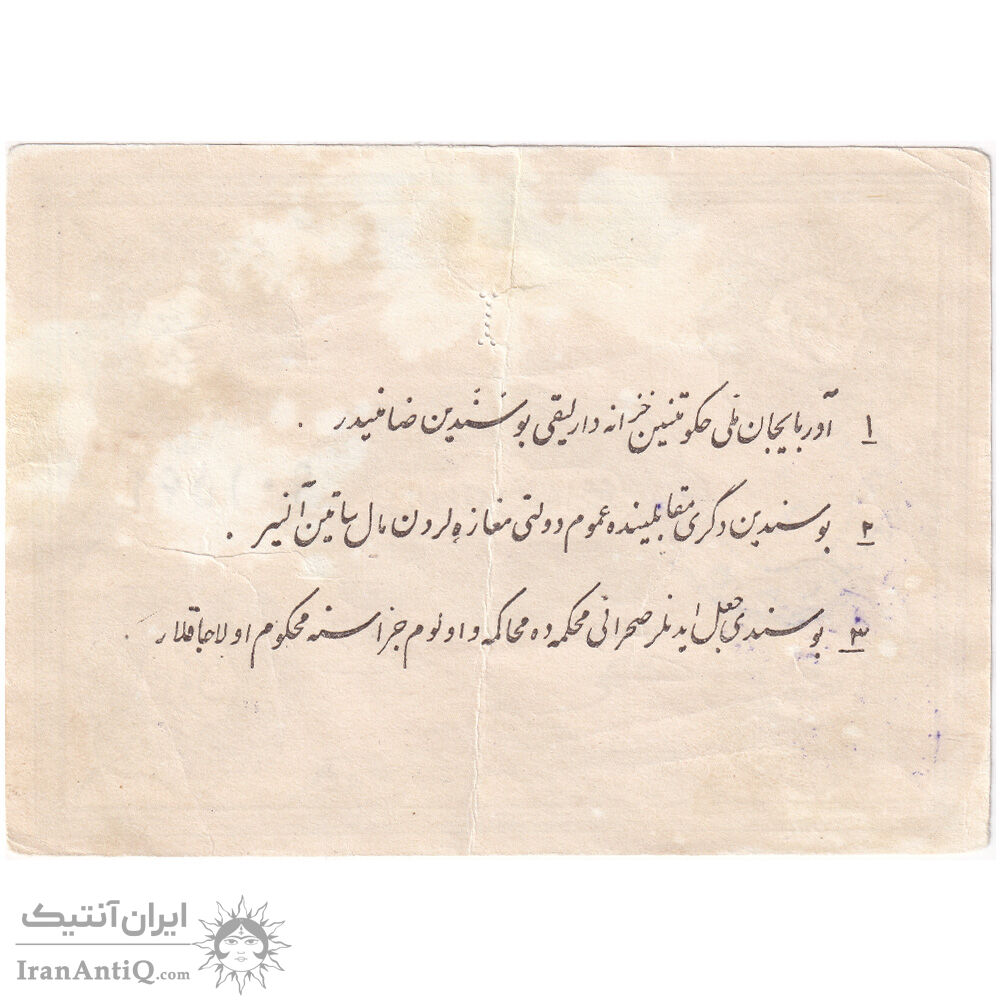 ۱ آذربایجان ملی حکومتنین خزانه دارلیقی بوسندین ضامنیدر .
۲ بوسندین دگری مقابلینده عموم دولتی مغازه لردن مال ساتین آلنیر .
۳ بوسندی جعل ایدنلر صحرائی محکمه ده محاکمه و اولوم جزاسنه محکوم اولاجاقلار .
ایران آنتیک
IranAntiQ.com